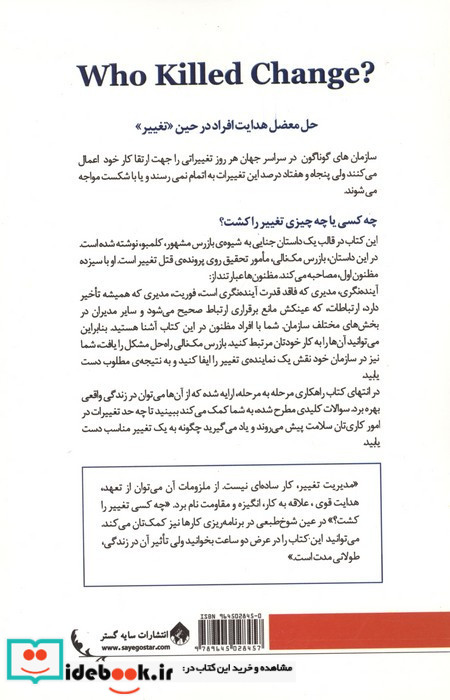 Who Killed Change?
حل معضل هدایت افراد در حین «تغییر»
سازمان های گوناگون در سراسر جهان هر روز تغییراتی را جهت ارتقا کار خود اعمال
می‌کنند ولی پنجاه و هفتاد درصد این تغییرات به اتمام نمی رسند و یا با شکست مواجه
می‌شوند.
چه کسی یا چه چیزی تغییر را کشت؟
این کتاب در قالب یک داستان جنایی به شیوه‌ی بازرس مشهور، کلمبو، نوشته شده است.
در این داستان، بازرس مک‌نالی، مأمور تحقیق روی پرونده‌ی قتل تغییر است. او با سیزده
مظنون اول، مصاحبه می‌کند. مظنون‌ها عبارتند از:
آینده‌نگری، مدیری که فاقد قدرت آینده‌نگری است، فوریت، مدیری که همیشه تأخیر
دارد، ارتباطات، که عینکش مانع برقراری ارتباط صحیح می‌شود و سایر مدیران در
بخش‌های مختلف سازمان. شما با افراد مظنون در این کتاب آشنا هستید. بنابراین
می‌توانید آن‌ها را به کار خودتان مرتبط کنید. بازرس مک‌نالی راه‌حل مشکل را یافت، شما
نیز در سازمان خود نقش یک نماینده‌ی تغییر را ایفا کنید و به نتیجه‌ی مطلوب دست
یابید.
در انتهای کتاب راهکاری مرحله به مرحله، ارایه شده که از آن‌ها می‌توان در زندگی واقعی
بهره برد. سوالات کلیدی مطرح شده، به شما کمک می‌کند ببینید تا چه حد تغییرات در
امور کاری‌تان سلامت پیش می‌روند و یاد می‌گیرید چگونه به یک تغییر مناسب دست
یابید.
«مدیریت تغییر، کار ساده‌ای نیست. از ملزومات آن می‌توان از تعهد،
هدایت قوی، علاقه به کار، انگیزه و مقاومت نام برد. «چه کسی تغییر را
کشت؟» در عین شوخ‌طبعی در برنامه‌ریزی کارها نیز کمک‌تان می‌کند.
می‌توانید این کتاب را در عرض دو ساعت بخوانید ولی تأثیر آن در زندگی،
طولانی مدت است.»
ISBN 964502845-0
9 789645 028457
انتشارات سایه گستر
www.sayegostar.com
idebook.ir
مشاهده و خرید این کتاب در: